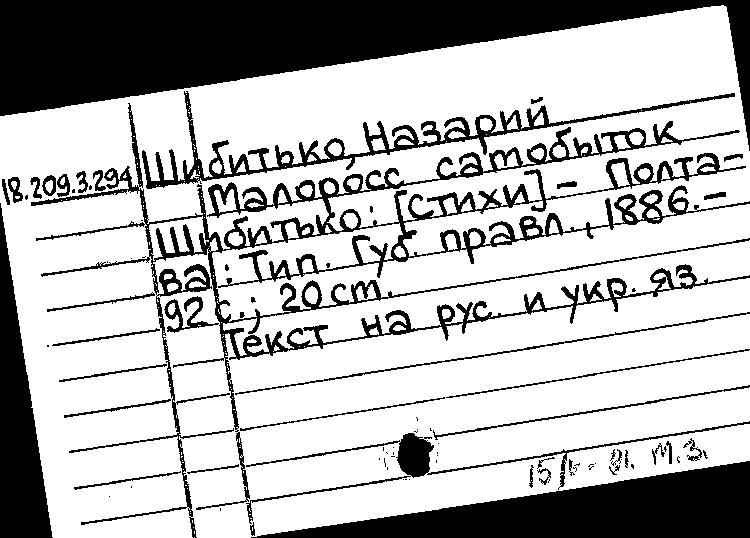 18.209.3.294
Шибитько, Назарий
Малоросс самобыток
Шибитько: [Стихи] - Полта-
ва: Тип. Губ. правл., 1886.-
92 с.; 20 cm.
Текст на рус. и укр. яз.
81. М.З.